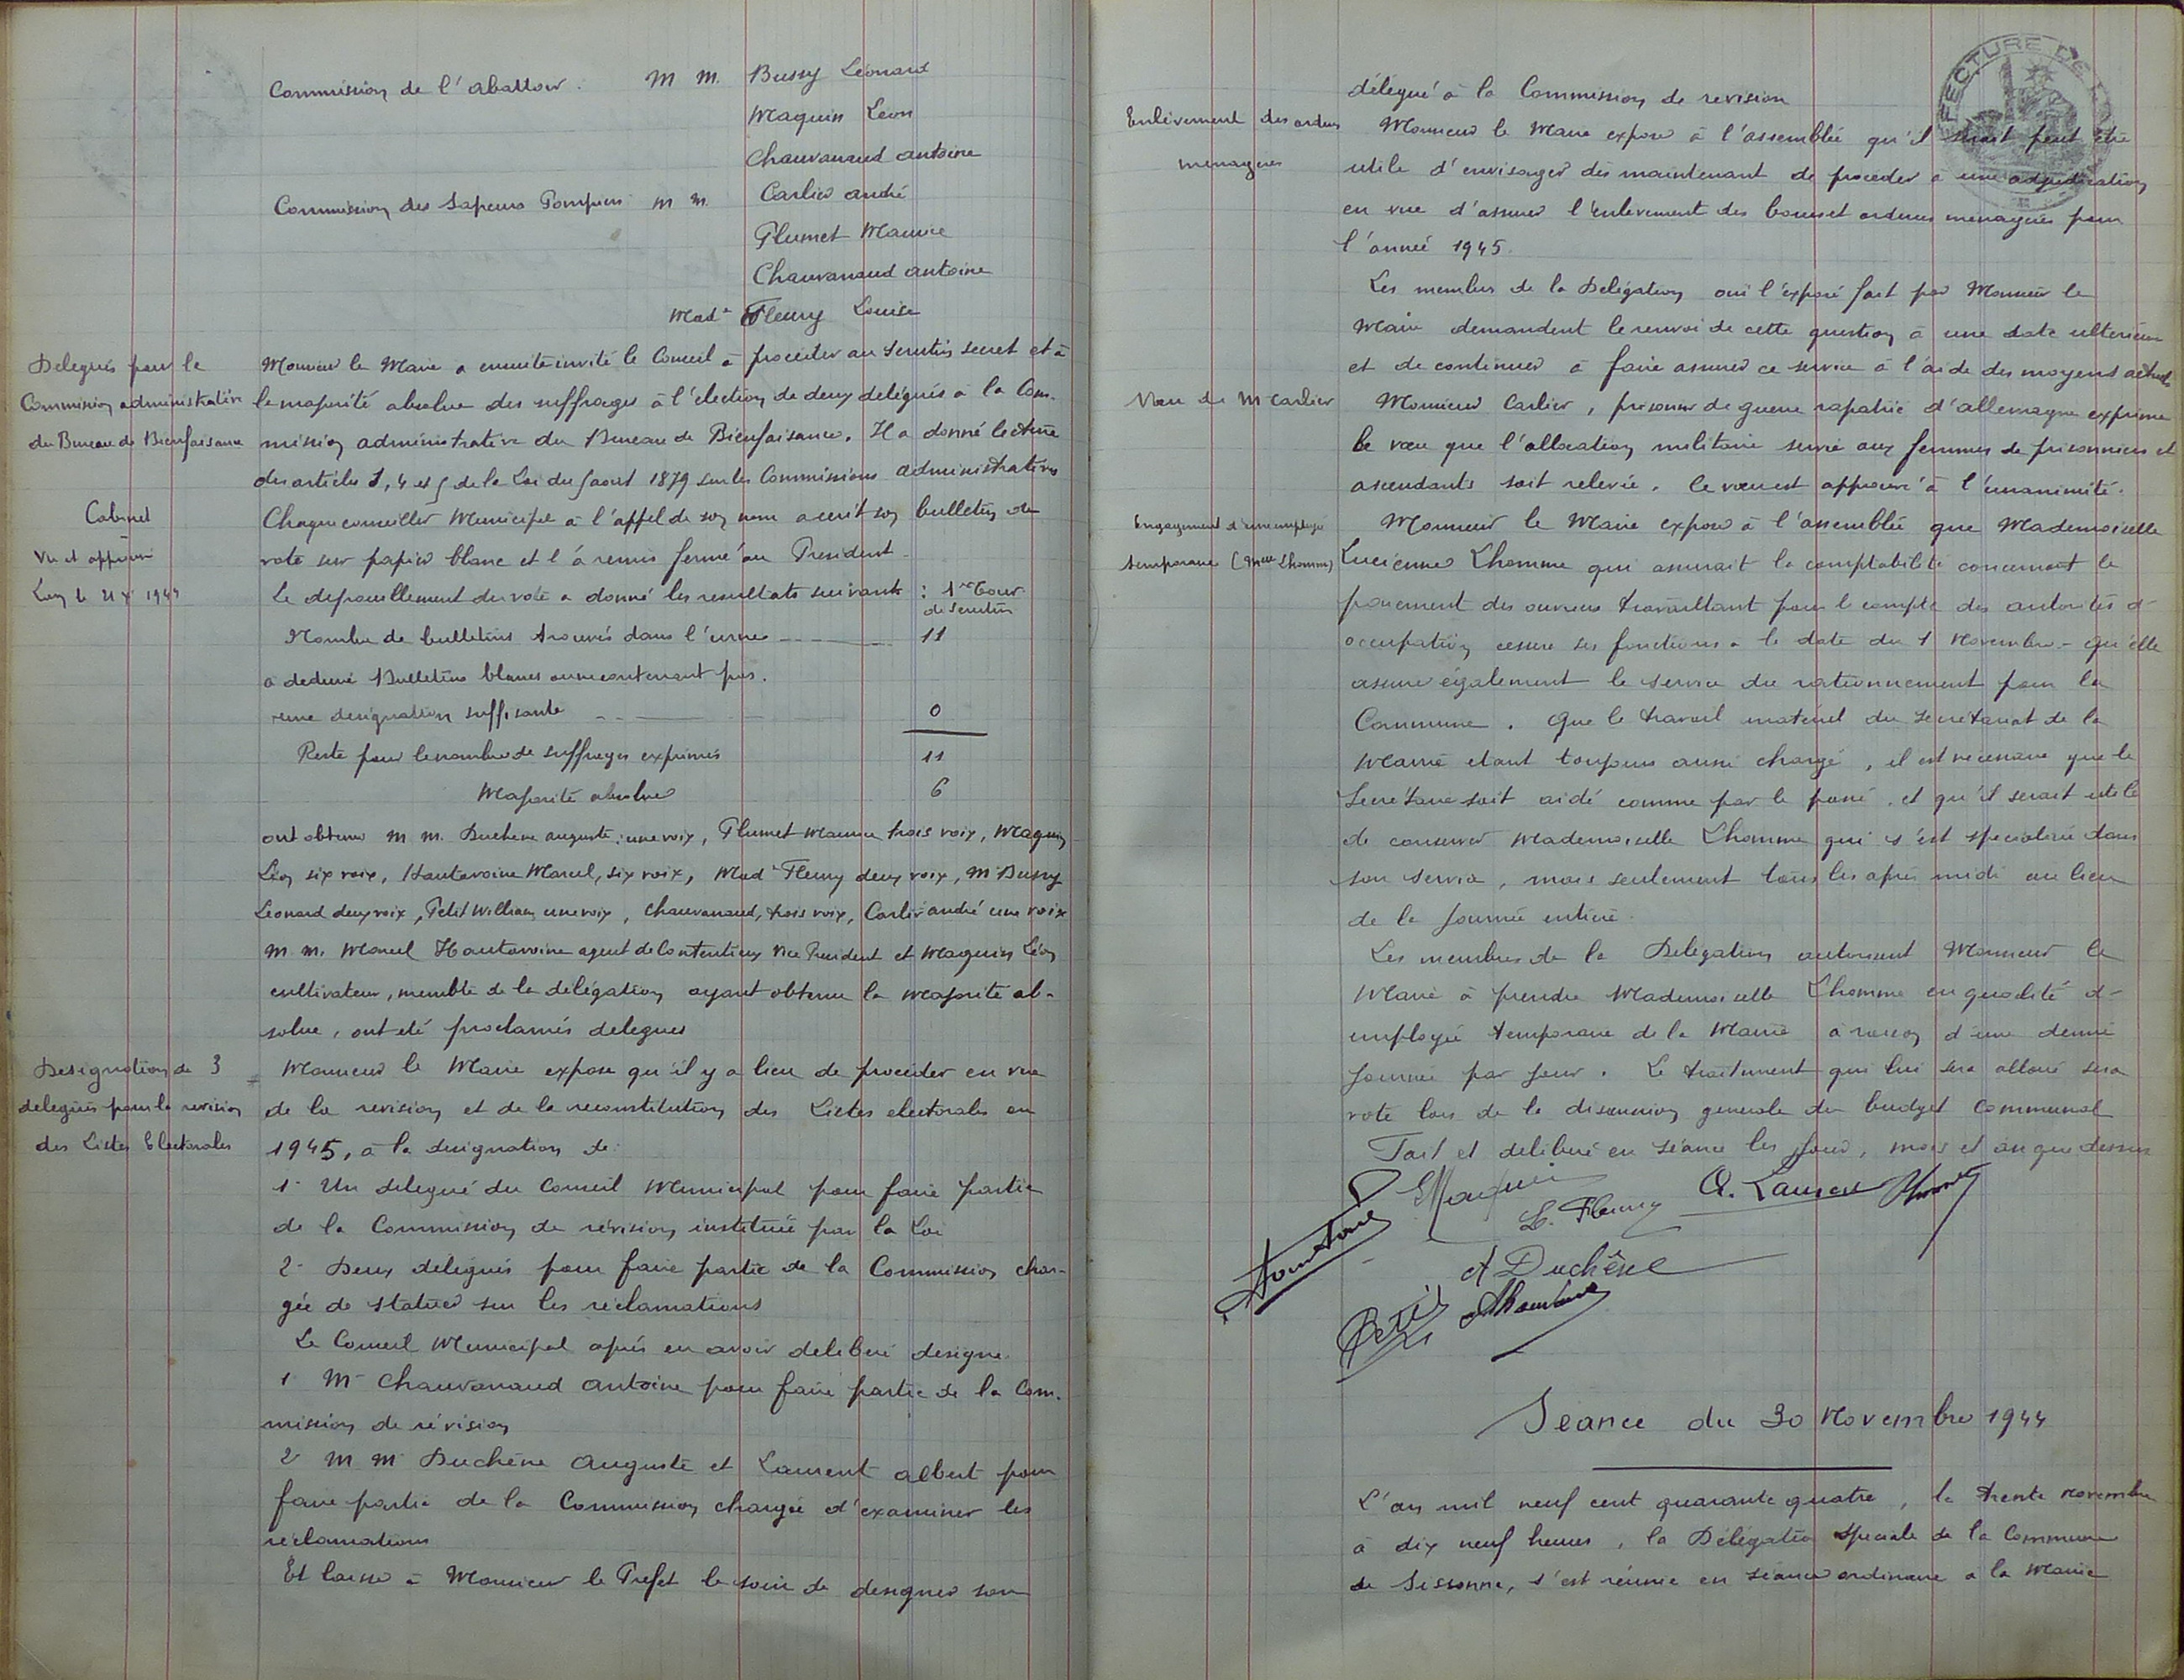 Commission de l'abattoir. M M. Bussy Léonard
Maquin Léon
Chauvanaud antoine
Commission des Sapeurs Pompiers M M. Carlier andré
Plumet Maurice
Chauvanaud antoine
Mad e Fleury Louise
Delegués pour la
Commission administrative
du Bureau de Bienfaisance
Monsieur le Maire a ensuite invité le Conseil à procéder au scrutin secret et à
la majorité absolue des suffrages à l'élection de deux delégués à la Com-
mission administrative du Bureau de Bienfaisance. Il a donné lecture
des articles 1, 4 et 5 de la Loi du 5 aout 1879 sur les Commissions administratives
Cabinet
Vu et approuvé
Laon le 21 X 1944
Chaque conseiller Municipal à l'appel de son nom a écrit son bulletin de
vote sur papier blanc et l'a remis fermé au President
Le depouillement du vote a donné les resultats suivants : 1er Tour
de scrutin
Nombre de bulletins trouvés dans l'urne 11
a deduire Bulletins blancs ou ne contenant pas.
une designation suffisante 0
Reste pour le nombre de suffrages exprimés 11
Majorité absolue 6
ont obtenu M M. Duchene auguste: une voix, Plumet Maurice trois voix, Maquin
Léon six voix, Hautavoine Marcel, six voix, Mad e Fleury deux voix, M Bussy
Leonard deux voix, Petit William une voix, Chauvanaud, trois voix, Carlier andré une voix
M M. Marcel Hautavoine agent de Contentieux Vice President et Maquin Léon
cultivateur, membre de la délégation ayant obtenu la majorité ab-
solue, ont été proclamés delegués
Designation de 3
delegués pour la revision
des Listes Electorales
Monsieur le Maire expose qu'il y a lieu de procéder en vue
de la revision et de la reconstitution des Listes electorales en
1945, à la designation de:
1- Un delegué du Conseil Municipal pour faire partie
de la Commission de révision instituée par la Loi
2- Deux delégués pour faire partie de la Commission char-
gée de statuer sur les réclamations
Le Conseil Municipal après en avoir deliberé designe.
1 M- Chauvanaud Antoine pour faire partie de la Com.
mission de révision
2 M M Duchène Auguste et Laurent albert pour
faire partie de la Commission chargée d'examiner les
réclamations
Et laisse à Monsieur le Prefet le soin de designer son
délégué à la Commission de revision
Enlèvement des ordures
menagères
Monsieur le Maire expose à l'assemblée qu'il serait peut être
utile d'envisager dès maintenant de proceder a une adjudication
en vue d'assurer l'enlevement des boues et ordures menageres pour
l'année 1945.
Les membres de la Delégation ouï l'exposé fait par Monsieur le
Maire demandent le renvoi de cette question à une date ulterieure
et de continuer à faire assurer ce service à l'aide des moyens actuels
Vœu de M Carlier
Monsieur Carlier, prisonnier de guerre rapatrié d'allemagne exprime
le vœu que l'allocation militaire servie aux femmes de prisonniers et
ascendants soit relevée. Ce vœu est approuvé à l'unanimité.
Engagement d'une employée
temporaire (Melle Lhomme)
Monsieur le Maire expose à l'assemblée que Mademoiselle
Lucienne Lhomme qui assurait la comptabilité concernant le
paiement des ouvriers travaillant pour le compte des autorités d-
occupation cesse ses fonctions a la date du 1 Novembre - qu'elle
assure également le service du rationnement pour la
Commune. Que le travail materiel du secrétariat de la
Mairie etant toujours aussi chargé, il est nécessaire que le
Secrétaire soit aidé comme par le passé. et qu'il serait utile
de conserver Mademoiselle Lhomme qui s'est specialisée dans
son service, mais seulement tous les après midi au lieu
de la journée entière.
Les membres de la Delegation autorisent Monsieur le
Maire à prendre Mademoiselle Lhomme en qualité d-
employée temporaire de la Mairie à raison d'une demi
journée par jour. Le traitement qui lui sera alloué sera
voté lors de la discussion generale du budget Communal
Fait et deliberé en séance les jour, mois et an que dessus
Maquin
L. Fleury
A. Laurent
A Duchêne
Petit
Seance du 30 Novembre 1944
L'an mil neuf cent quarante quatre, le trente novembre
à dix neuf heures, la Délégation speciale de la Commune
de Sissonne, s'est réunie en séance ordinaire a la Mairie